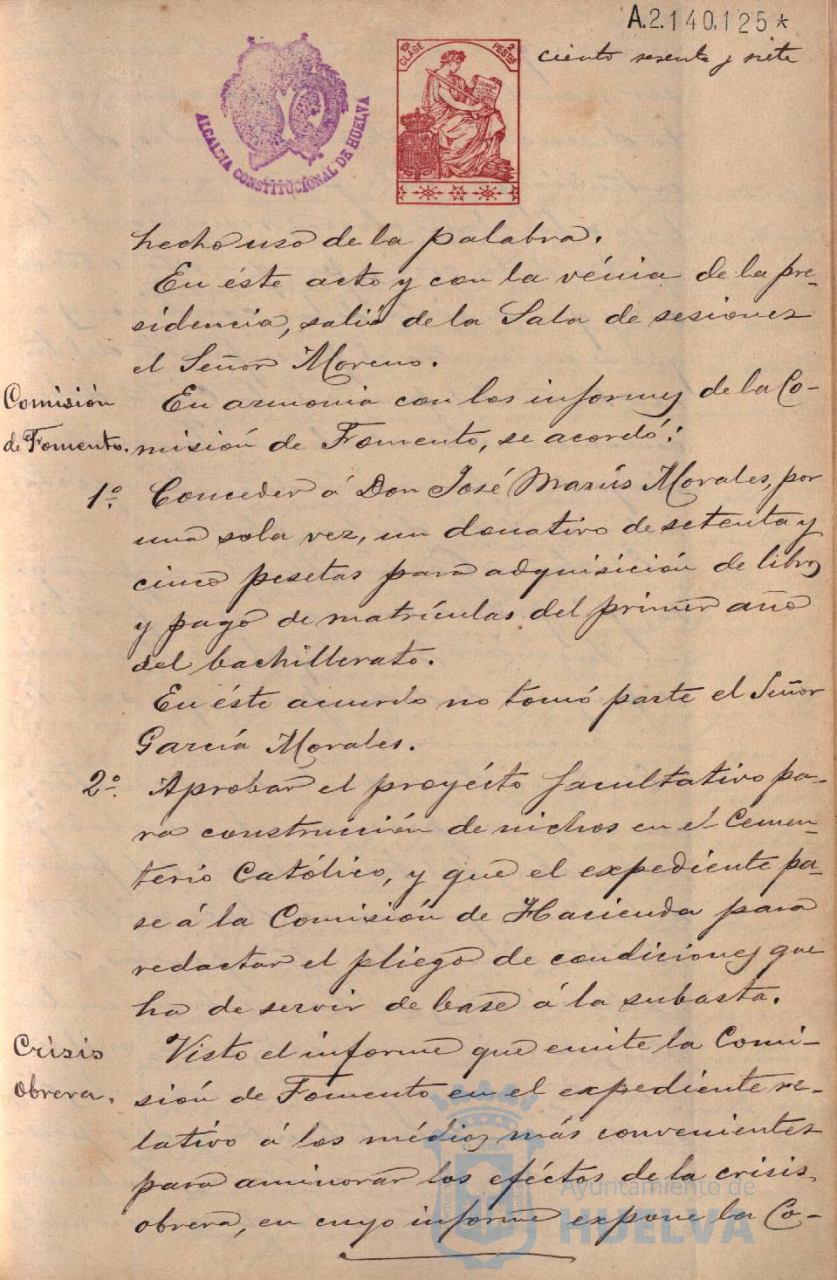 A.2.140.125*
ciento sesenta y siete
ALCALDIA CONSTITUCIONAL DE HUELVA
10ª CLASE
2 PESTAS
hecho uso de la palabra.
En éste acto y con la vénia de la pre-
sidencia, salió de la Sala de sesiones
el Señor Moreno.
Comisión
de Fomento.
En armonia con los informes de la Co-
misión de Fomento, se acordó:
1º. Conceder á Don José Marús Morales, por
una sola vez, un donativo de setenta y
cinco pesetas para adquisición de libros
y pago de matrículas del primer año
del bachillerato.
En éste acuerdo no tomó parte el Señor
García Morales.
2º. Aprobar el proyécto facultativo pa-
ra construcción de nichos en el Cemen-
terio Católico, y que el expediente pa-
se á la Comisión de Hacienda para
redactar el pliego de condiciones que
ha de servir de base á la subasta.
Crisis
obrera.
Visto el informe que emite la Comi-
sión de Fomento en el expediente re-
lativo á los médios más convenientes
para aminorar los eféctos de la crisis
obrera, en cuyo informe expone la Co-
Ayuntamiento de
HUELVA